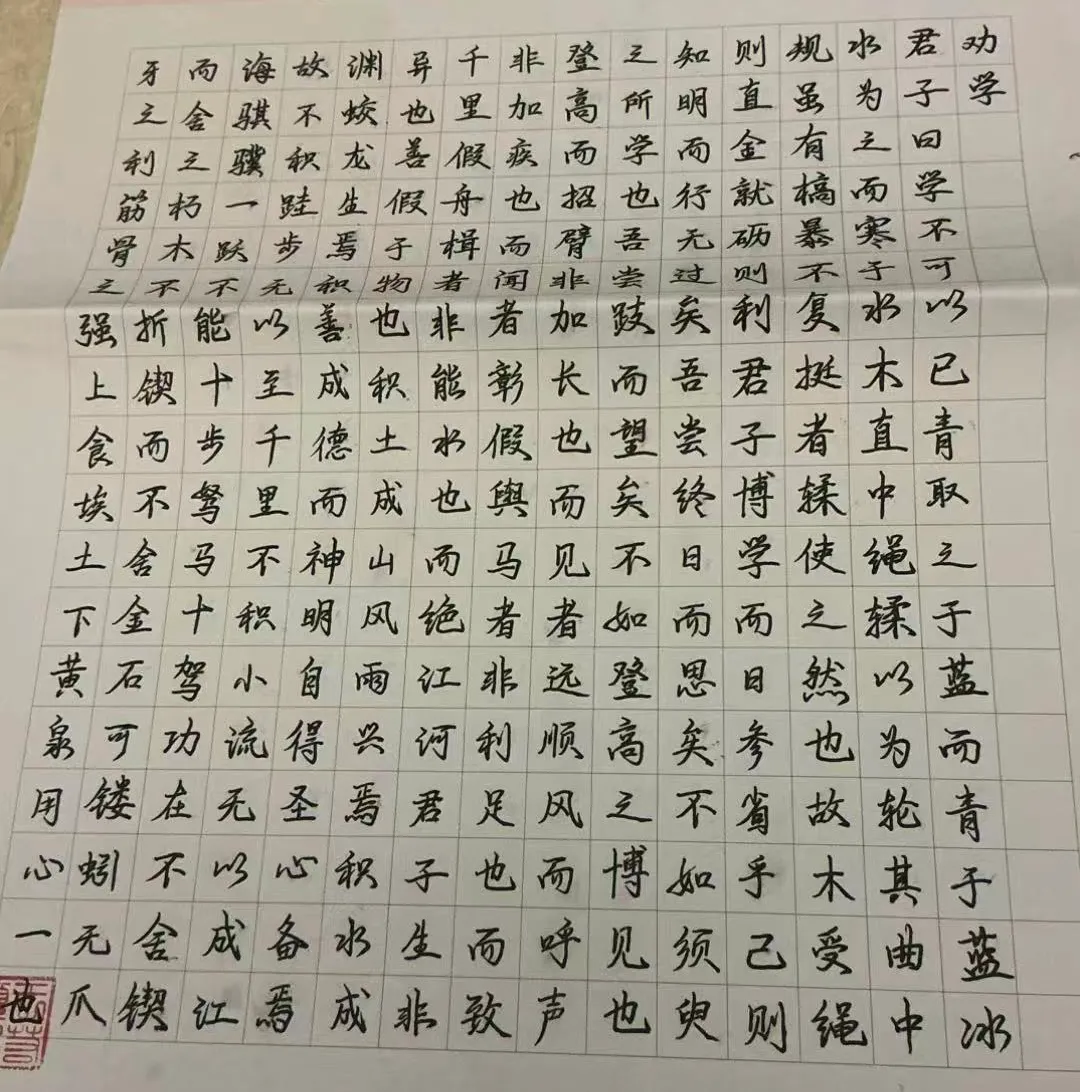 劝学
君子曰学不可以已青取之于蓝而青于蓝冰
水为之而寒于水木直中绳𫐓以为轮其曲中
规虽有槁暴不复挺者𫐓使之然也故木受绳
则直金就砺则利君子博学而日参省乎己则
知明而行无过矣吾尝终日而思矣不如须臾
之所学也吾尝跂而望矣不如登高之博见也
登高而招臂非加长也而见者远顺风而呼声
非加疾也而闻者彰假舆马者非利足也而致
千里假舟楫者非能水也而绝江河君子生非
异也善假于物也积土成山风雨兴焉积水成
渊蛟龙生焉积善成德而神明自得圣心备焉
故不积跬步无以至千里不积小流无以成江
海骐骥一跃不能十步驽马十驾功在不舍锲
而舍之朽木不折锲而不舍金石可镂蚓无爪
牙之利筋骨之强上食埃土下黄泉用心一也